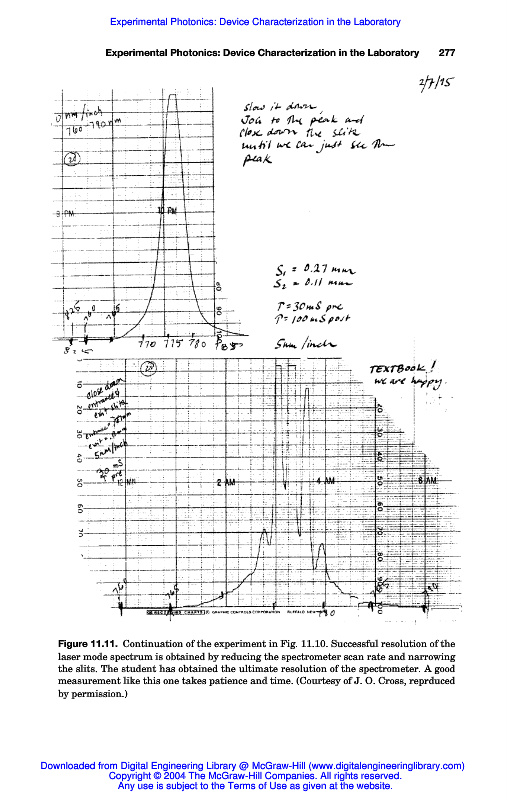 Experimental Photonics: Device Characterization in the Laboratory
Experimental Photonics: Device Characterization in the Laboratory 277
2/7/95
slow it down,
Jog to the peak and
close down the slits
until we can just see the
peak
nm/inch
760-790nm
8 PM
10 PM
S₁ = 0.27 mm
S₂ = 0.11 mm
T = 30mS pre
T = 100mS post
5nm/inch
770 775 780 785
TEXTBOOK!
we are happy.
close down
entrance &
exit slits
5nm/inch
30 mS
pre
10 20 30 40 50 60 70
2 AM
4 AM
6 AM
20 30 40 50 60 70 80 90
GRAPHIC CONTROLS CORPORATION BUFFALO, NEW
Figure 11.11. Continuation of the experiment in Fig. 11.10. Successful resolution of the
laser mode spectrum is obtained by reducing the spectrometer scan rate and narrowing
the slits. The student has obtained the ultimate resolution of the spectrometer. A good
measurement like this one takes patience and time. (Courtesy of J. O. Cross, reprduced
by permission.)
Downloaded from Digital Engineering Library @ McGraw-Hill (www.digitalengineeringlibrary.com)
Copyright © 2004 The McGraw-Hill Companies. All rights reserved.
Any use is subject to the Terms of Use as given at the website.